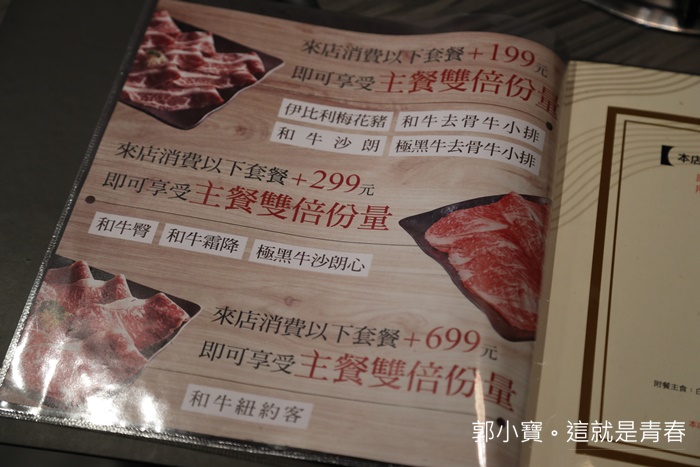 來店消費以下套餐+199元
即可享受主餐雙倍份量
伊比利梅花豬 和牛去骨牛小排
和牛沙朗 極黑牛去骨牛小排
來店消費以下套餐+299元
即可享受主餐雙倍份量
和牛臀 和牛霜降 極黑牛沙朗心
來店消費以下套餐+699元
即可享受主餐雙倍份量
和牛紐約客
【本店
附餐主食:白
本店
郭小寶。這就是青春